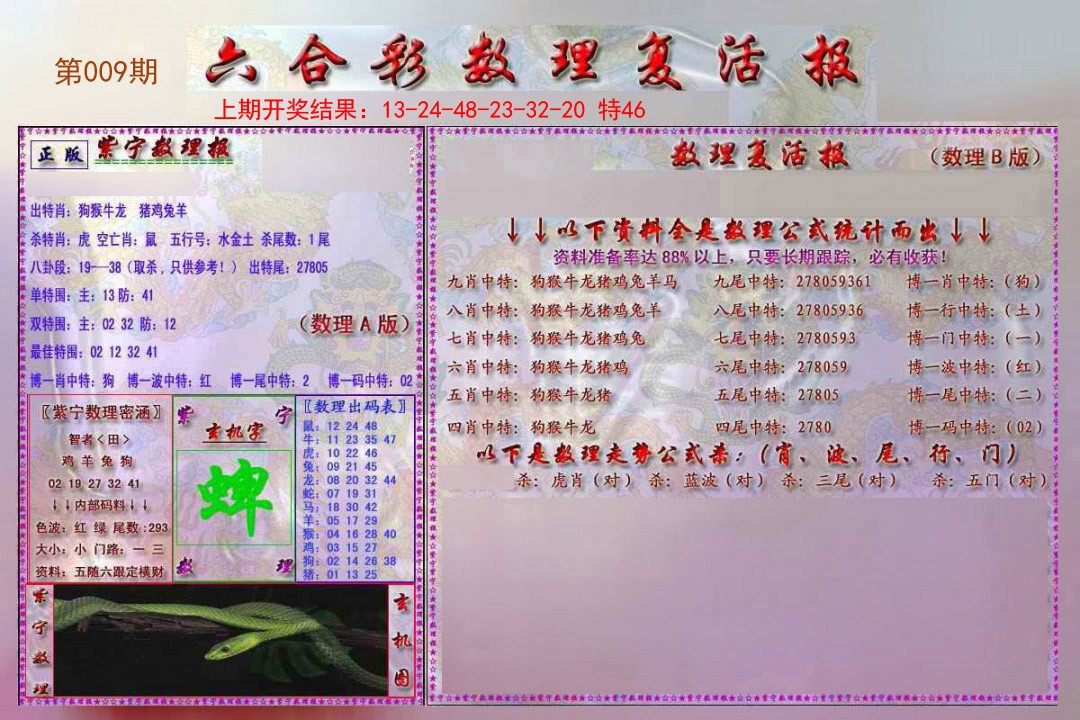 第009期
六合彩数理复活报
上期开奖结果：13-24-48-23-32-20 特46
正版 紫宁数理报
出特肖：狗猴牛龙 猪鸡兔羊
杀特肖：虎 空亡肖：鼠 五行号：水金土 杀尾数：1尾
八卦段：19--38（取杀,只供参考！） 出特尾：27805
单特围：主：13 防：41
双特围：主：02 32 防：12
（数理A版）
最佳特围：02 12 32 41
博一肖中特：狗 博一波中特：红 博一尾中特：2 博一码中特：02
〖紫宁数理密涵〗
智者＜田＞
鸡 羊 兔 狗
02 19 27 32 41
↓↓内部码料↓↓
色波：红 绿 尾数:293
大小：小 门路：一 三
资料：五随六跟定横财
紫宁
玄机字
蜱
数理
〖数理出码表〗
鼠：12 24 48
牛：11 23 35 47
虎：10 22 46
兔：09 21 45
龙：08 20 32 44
蛇：07 19 31
马：18 30 42
羊：05 17 29
猴：04 16 28 40
鸡：03 15 27
狗：02 14 26 38
猪：01 13 25
紫宁数理
玄机图
数理复活报
（数理B版）
↓↓以下资料全是数理公式统计而出↓↓
资料准备率达88%以上，只要长期跟踪，必有收获！
九肖中特：狗猴牛龙猪鸡兔羊马 九尾中特：278059361 博一肖中特：（狗）
八肖中特：狗猴牛龙猪鸡兔羊 八尾中特：27805936 博一行中特：（土）
七肖中特：狗猴牛龙猪鸡兔 七尾中特：2780593 博一门中特：（一）
六肖中特：狗猴牛龙猪鸡 六尾中特：278059 博一波中特：（红）
五肖中特：狗猴牛龙猪 五尾中特：27805 博一尾中特：（二）
四肖中特：狗猴牛龙 四尾中特：2780 博一码中特：（02）
以下是数理走势公式杀：（肖、波、尾、行、门）
杀：虎肖（对） 杀：蓝波（对） 杀：三尾（对） 杀：五门（对）